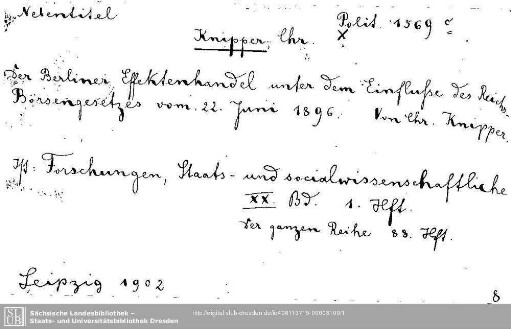 Nebentitel
Polit. 1569 c
x
Knipper, Chr.
Der Berliner Effektenhandel unter dem Einfluße des Reichs-
Börsengesetzes vom 22. Juni 1896. Von Chr. Knipper.
Ist: Forschungen, Staats- und socialwissenschaftliche
XX. Bd. 1. Hft.
Der ganzen Reihe 88. Hft.
Leipzig 1902
8
SLUB
Sächsische Landesbibliothek –
Staats- und Universitätsbibliothek Dresden